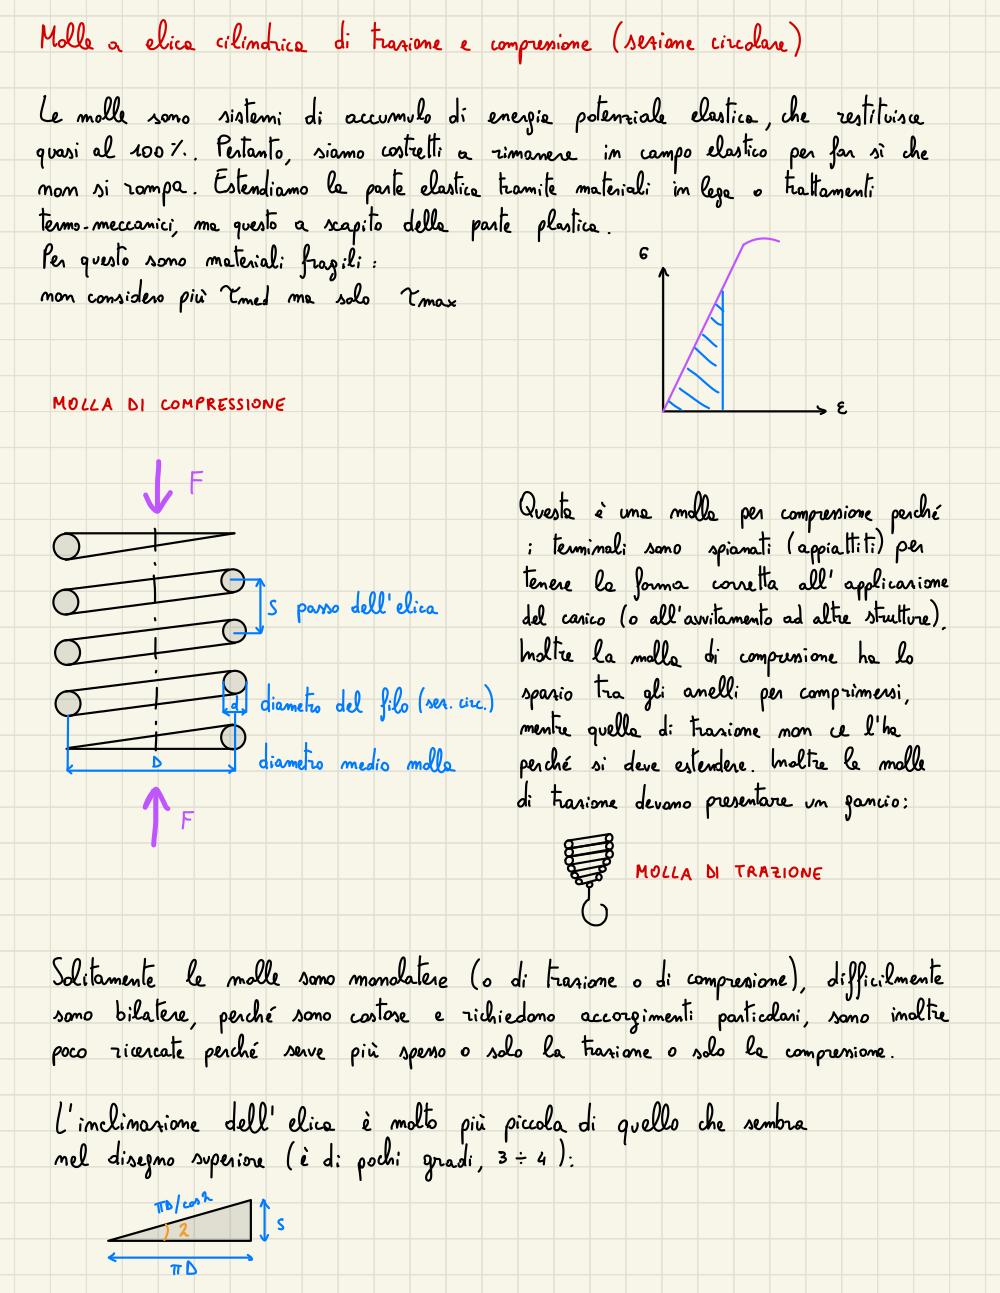 Molle a elica cilindrica di trazione e compressione (sezione circolare)
Le molle sono sistemi di accumulo di energia potenziale elastica, che restituisce
quasi al 100%. Pertanto, siamo costretti a rimanere in campo elastico per far sì che
non si rompa. Estendiamo la parte elastica tramite materiali in lega o trattamenti
termo-meccanici, ma questo a scapito della parte plastica.
Per questo sono materiali fragili:
non considero più τmed ma solo τmax
σ
ε
MOLLA DI COMPRESSIONE
F
S passo dell'elica
d diametro del filo (sez. circ.)
D diametro medio molla
F
Questa è una molla per compressione perché
i terminali sono spianati (appiattiti) per
tenere la forma corretta all'applicazione
del carico (o all'avvitamento ad altre strutture).
Inoltre la molla di compressione ha lo
spazio tra gli anelli per comprimersi,
mentre quella di trazione non ce l'ha
perché si deve estendere. Inoltre le molle
di trazione devono presentare un gancio:
MOLLA DI TRAZIONE
Solitamente le molle sono monolatere (o di trazione o di compressione), difficilmente
sono bilatere, perché sono costose e richiedono accorgimenti particolari, sono inoltre
poco ricercate perché serve più spesso o solo la trazione o solo la compressione.
L'inclinazione dell'elica è molto più piccola di quello che sembra
nel disegno superiore (è di pochi gradi, 3 ÷ 4):
πD/cosλ
λ
S
πD